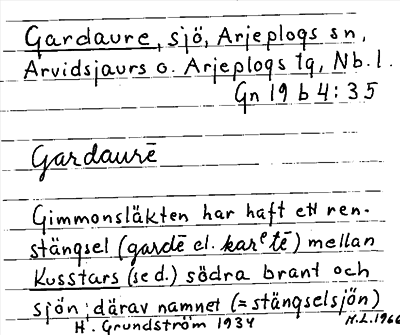 Gardaure, sjö, Arjeplogs sn,
Arvidsjaurs o. Arjeplogs tg, Nb. l.
Gn 19 b 4:35
Gardaurē
Gimmonsläkten har haft ett ren-
stängsel (gardē el. karᵉtē) mellan
Kusstars (se d.) södra brant och
sjön; därav namnet (= stängselsjön)
H. Grundström 1934 H.L. 1966